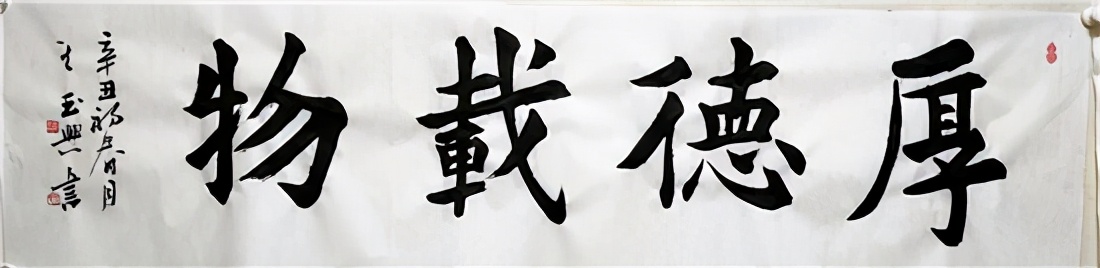 厚德載物
辛丑初春月
玉興書